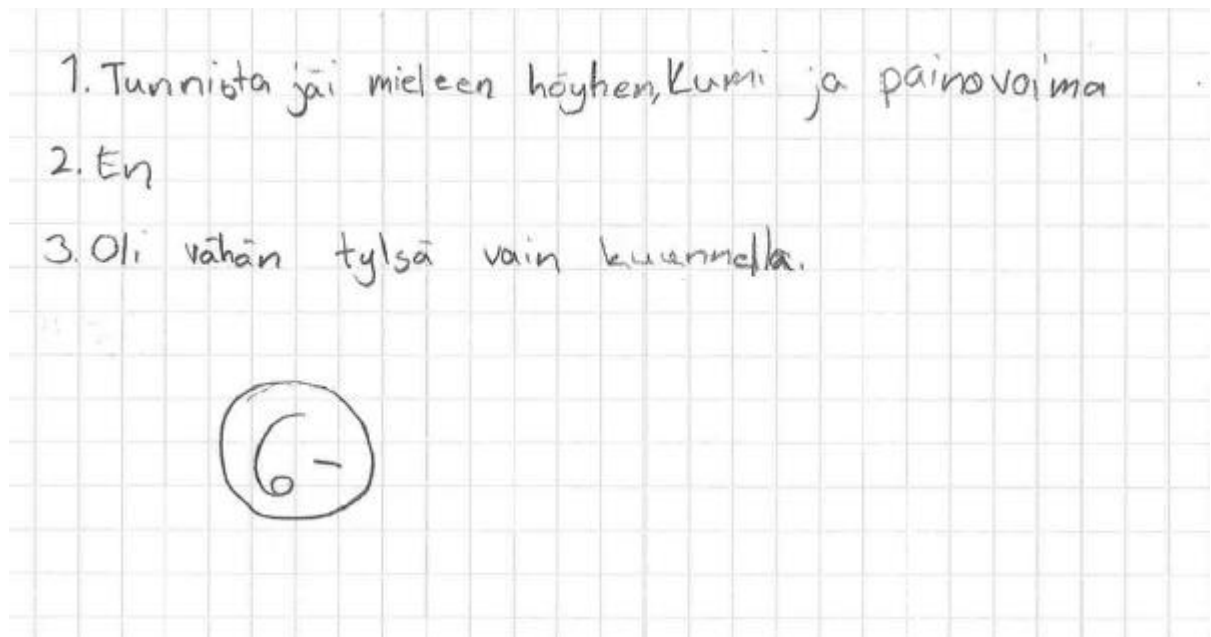 1. Tunnista jäi mieleen höyhen, Kumi ja painovoima
2. En
3. Oli vähän tylsä vain kuunnella.
6-